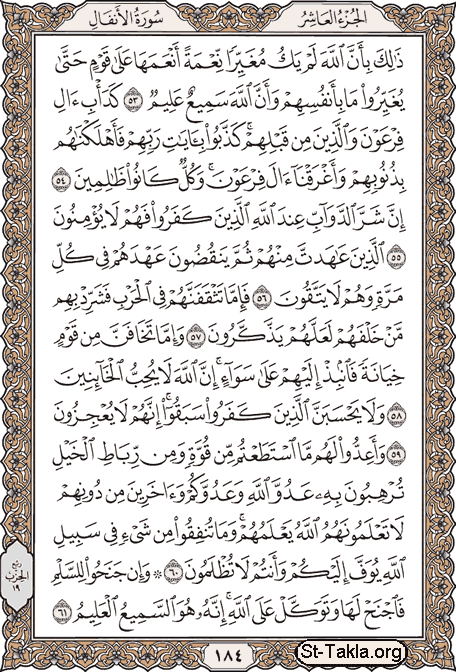 الجزء العاشر
سورة الأنفال
ذَٰلِكَ بِأَنَّ ٱللَّهَ لَمۡ يَكُ مُغَيِّرٗا نِّعۡمَةً أَنۡعَمَهَا عَلَىٰ قَوۡمٍ حَتَّىٰ
يُغَيِّرُواْ مَا بِأَنفُسِهِمۡ وَأَنَّ ٱللَّهَ سَمِيعٌ عَلِيمٞ ٥٣ كَدَأۡبِ ءَالِ
فِرۡعَوۡنَ وَٱلَّذِينَ مِن قَبۡلِهِمۡۚ كَذَّبُواْ بِـَٔايَٰتِ رَبِّهِمۡ فَأَهۡلَكۡنَٰهُم
بِذُنُوبِهِمۡ وَأَغۡرَقۡنَآ ءَالَ فِرۡعَوۡنَۚ وَكُلّٞ كَانُواْ ظَٰلِمِينَ ٥٤
إِنَّ شَرَّ ٱلدَّوَآبِّ عِندَ ٱللَّهِ ٱلَّذِينَ كَفَرُواْ فَهُمۡ لَا يُؤۡمِنُونَ
٥٥ ٱلَّذِينَ عَٰهَدتَّ مِنۡهُمۡ ثُمَّ يَنقُضُونَ عَهۡدَهُمۡ فِي كُلِّ
مَرَّةٖ وَهُمۡ لَا يَتَّقُونَ ٥٦ فَإِمَّا تَثۡقَفَنَّهُمۡ فِي ٱلۡحَرۡبِ فَشَرِّدۡ بِهِم
مَّنۡ خَلۡفَهُمۡ لَعَلَّهُمۡ يَذَّكَّرُونَ ٥٧ وَإِمَّا تَخَافَنَّ مِن قَوۡمٍ
خِيَانَةٗ فَٱنۢبِذۡ إِلَيۡهِمۡ عَلَىٰ سَوَآءٍۚ إِنَّ ٱللَّهَ لَا يُحِبُّ ٱلۡخَآئِنِينَ
٥٨ وَلَا يَحۡسَبَنَّ ٱلَّذِينَ كَفَرُواْ سَبَقُوٓاْۚ إِنَّهُمۡ لَا يُعۡجِزُونَ
٥٩ وَأَعِدُّواْ لَهُم مَّا ٱسۡتَطَعۡتُم مِّن قُوَّةٖ وَمِن رِّبَاطِ ٱلۡخَيۡلِ
تُرۡهِبُونَ بِهِۦ عَدُوَّ ٱللَّهِ وَعَدُوَّكُمۡ وَءَاخَرِينَ مِن دُونِهِمۡ
لَا تَعۡلَمُونَهُمُ ٱللَّهُ يَعۡلَمُهُمۡۚ وَمَا تُنفِقُواْ مِن شَيۡءٖ فِي سَبِيلِ
ٱللَّهِ يُوَفَّ إِلَيۡكُمۡ وَأَنتُمۡ لَا تُظۡلَمُونَ ٦٠ ۞ وَإِن جَنَحُواْ لِلسَّلۡمِ
فَٱجۡنَحۡ لَهَا وَتَوَكَّلۡ عَلَى ٱللَّهِۚ إِنَّهُۥ هُوَ ٱلسَّمِيعُ ٱلۡعَلِيمُ ٦١
ربع
الحزب
١٩
١٨٤
St-Takla.org